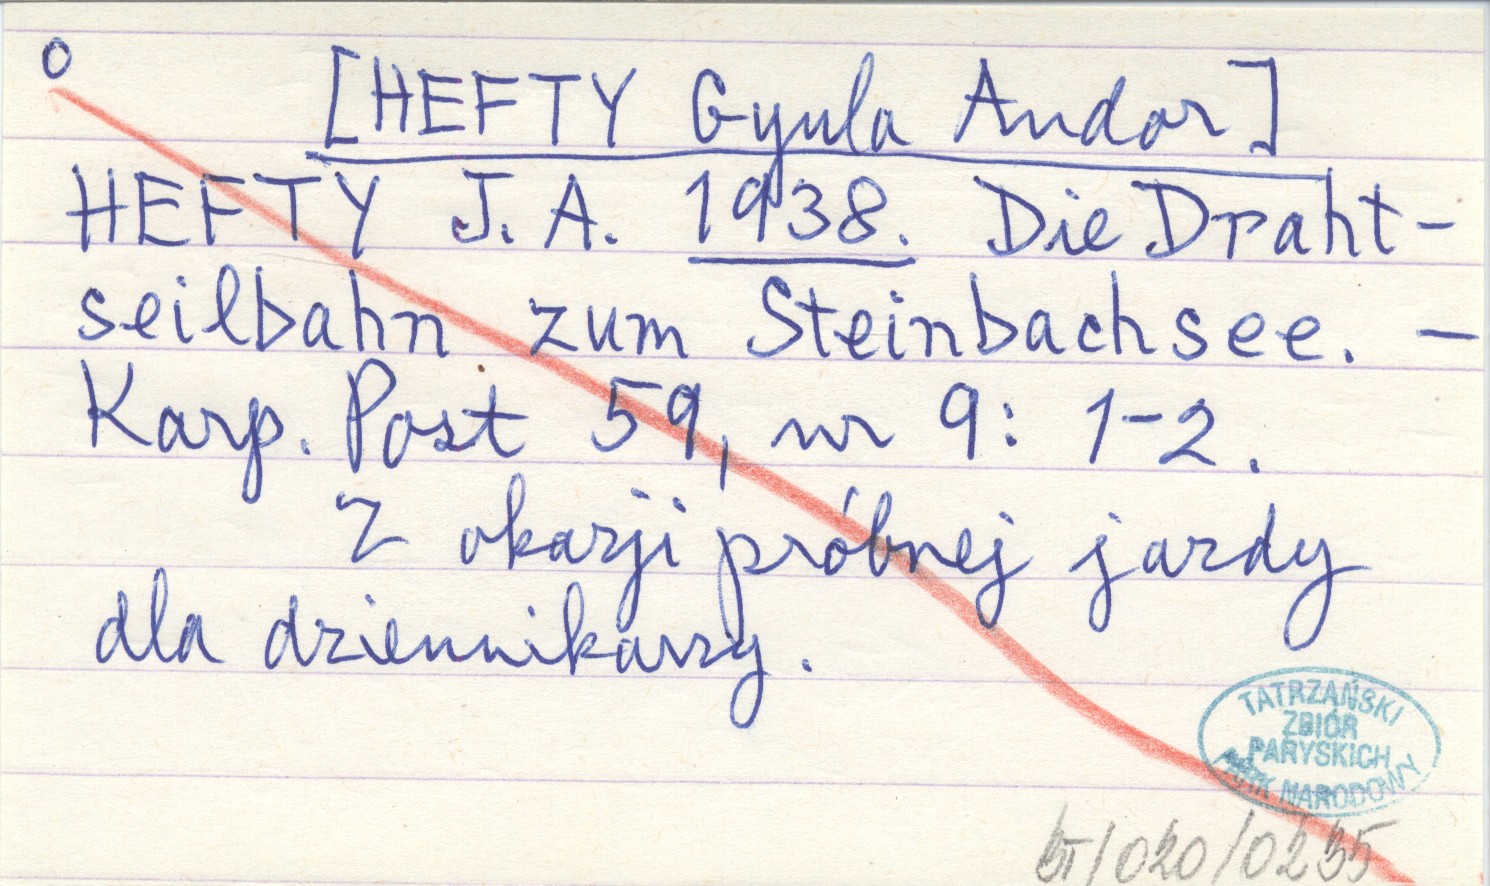 o
[HEFTY Gyula Andor]
HEFTY J. A. 1938. Die Draht-
seilbahn zum Steinbachsee. –
Karp. Post 59, nr 9: 1-2.
Z okazji próbnej jazdy
dla dziennikarzy.
TATRZAŃSKI
ZBIÓR
PARYSKICH
PARK NARODOWY
/020/0235